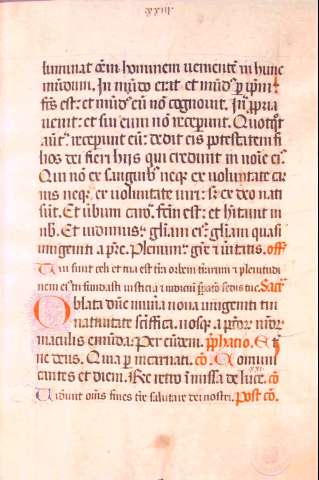 xxiii
luminat oēm hominem uenientē in hunc
mūdum. In mūdo erat et mūdꝰ p ipm̄
fc̄s est: et mūdꝰ eū nō cognouit. In ꝓpria
uenit: et sui eum nō receperunt. Quotqꝫ
aut̄ receperunt eū: dedit eis potestatem fi
lios dei fieri hijs qui credunt in noīe eiꝰ.
Qui nō ex sanguibꝰ neqꝫ ex uoluntate car
nis neqꝫ ex uoluntate uiri: sꝫ ex deo nati
sūt. Et uerbum caro fc̄m est: et hitauit in
nob. Et uidimus gl̄iam eiꝰ: gl̄iam quasi
unigeniti a pr̄e. Plenum gr̄e et ueritatis. off
Tui sunt celi et tua est t̄ra orbem t̄rarum et plenitudi
nem eiꝰ tu fundasti iusticia et iudiciū p̄paratio sedis tue. Sacr̄
Oblata dn̄e mun̄a noua unigeniti tui
natiuitate sc̄ifica. nosqꝫ a pctōꝝ nr̄oꝝ
maculis emūda. Per eūdem. p̄phatio. Et
ne deus. Quia p incarnati. cō. Et omuni
cantes et diem. Re retro ī missa de luce. cō
xxi
Uiderunt om̄s fines t̄re salutare dei nostri. Post cō.